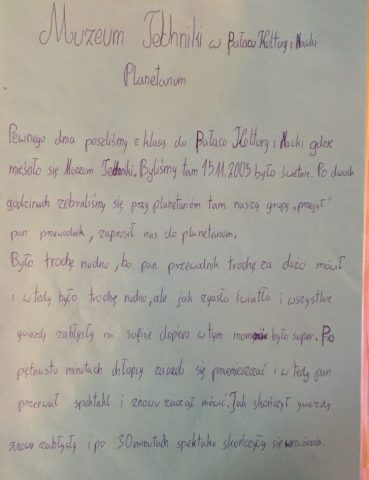 Muzeum Techniki w Pałacu Kultury i Nauki
Planetarium
Pewnego dnia poszliśmy z klasą do Pałacu Kultury i Nauki gdzie
mieśało się Muzeum Techniki. Byliśmy tam 15.11.2005 było świetnie. Po dwuch
godzinach zebraliśmy się przy planetariom tam naszą grupę „przejął"
pan przewodnik, zaprosił nas do planetarium.
Było trochę nudno, bo pan przewodnik trochę za dużo mówił
i wtedy było trochę nudno, ale jak zgasło światło i wszystkie
gwiazdy zabłysły na suficie dopiero w tym momęcie było super. Po
piętnastu minutach chłopcy zaczęli się przemieszczać i wtedy pan
przerwał spektakl i znowu zaczął mówić. Jak skończył gwiazdy
znowu zabłysły i po 30 minutach spektaklu skończyły się wrażenia.